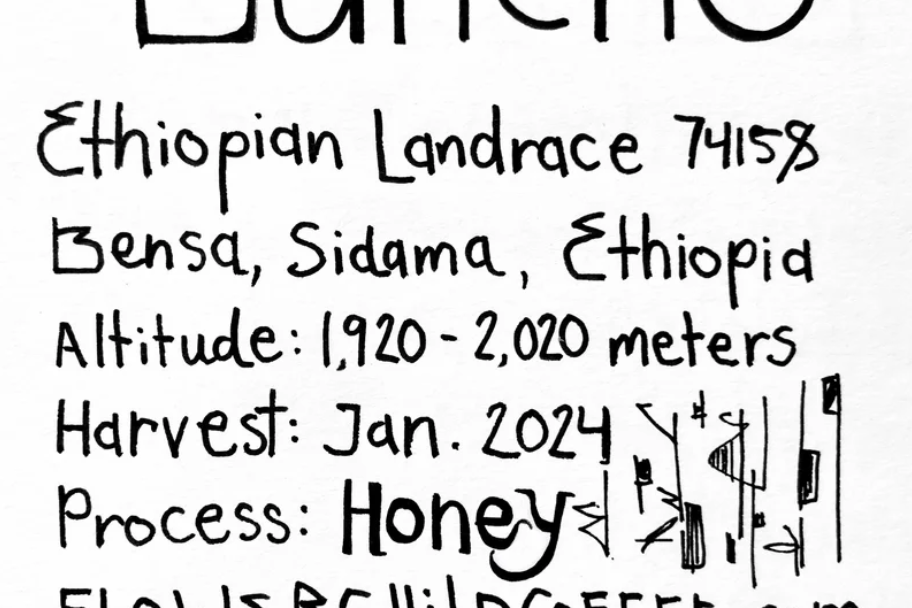 Ethiopian Landrace 74158
Bensa, Sidama, Ethiopia
Altitude: 1,920 - 2,020 meters
Harvest: Jan. 2024
Process: Honey